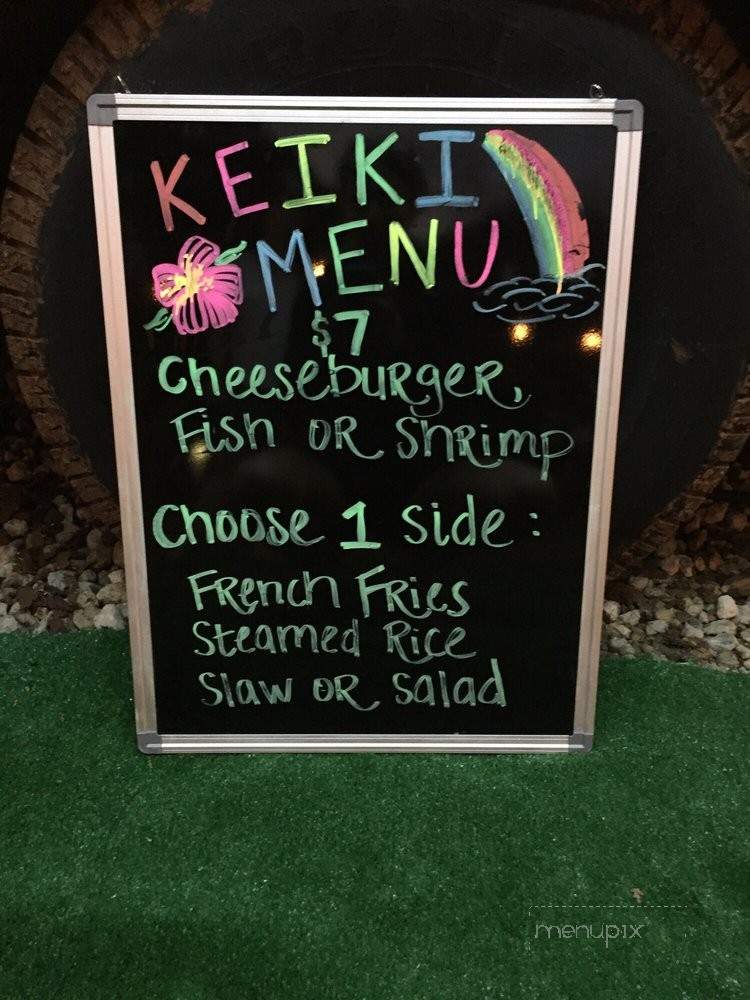 KEIKI
MENU
$7
Cheeseburger,
Fish or Shrimp
Choose 1 side:
French Fries
Steamed Rice
Slaw or Salad
menupix